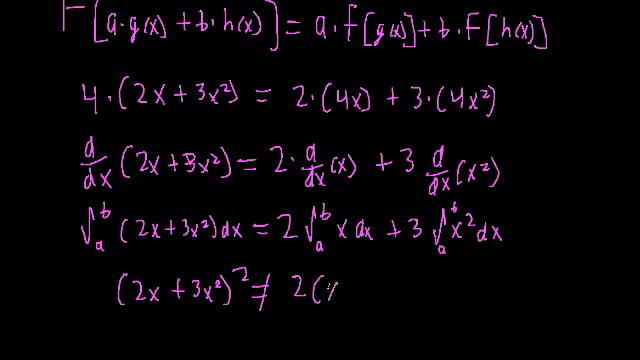 F[a·g(x) + b·h(x)] = a·f[g(x)] + b·F[h(x)]
4·(2x + 3x²) = 2·(4x) + 3·(4x²)
d/dx (2x + 3x²) = 2·d/dx (x) + 3 d/dx (x²)
∫ₐᵇ (2x + 3x²) dx = 2 ∫ₐᵇ x dx + 3 ∫ₐᵇ x² dx
(2x + 3x²)² ≠ 2(